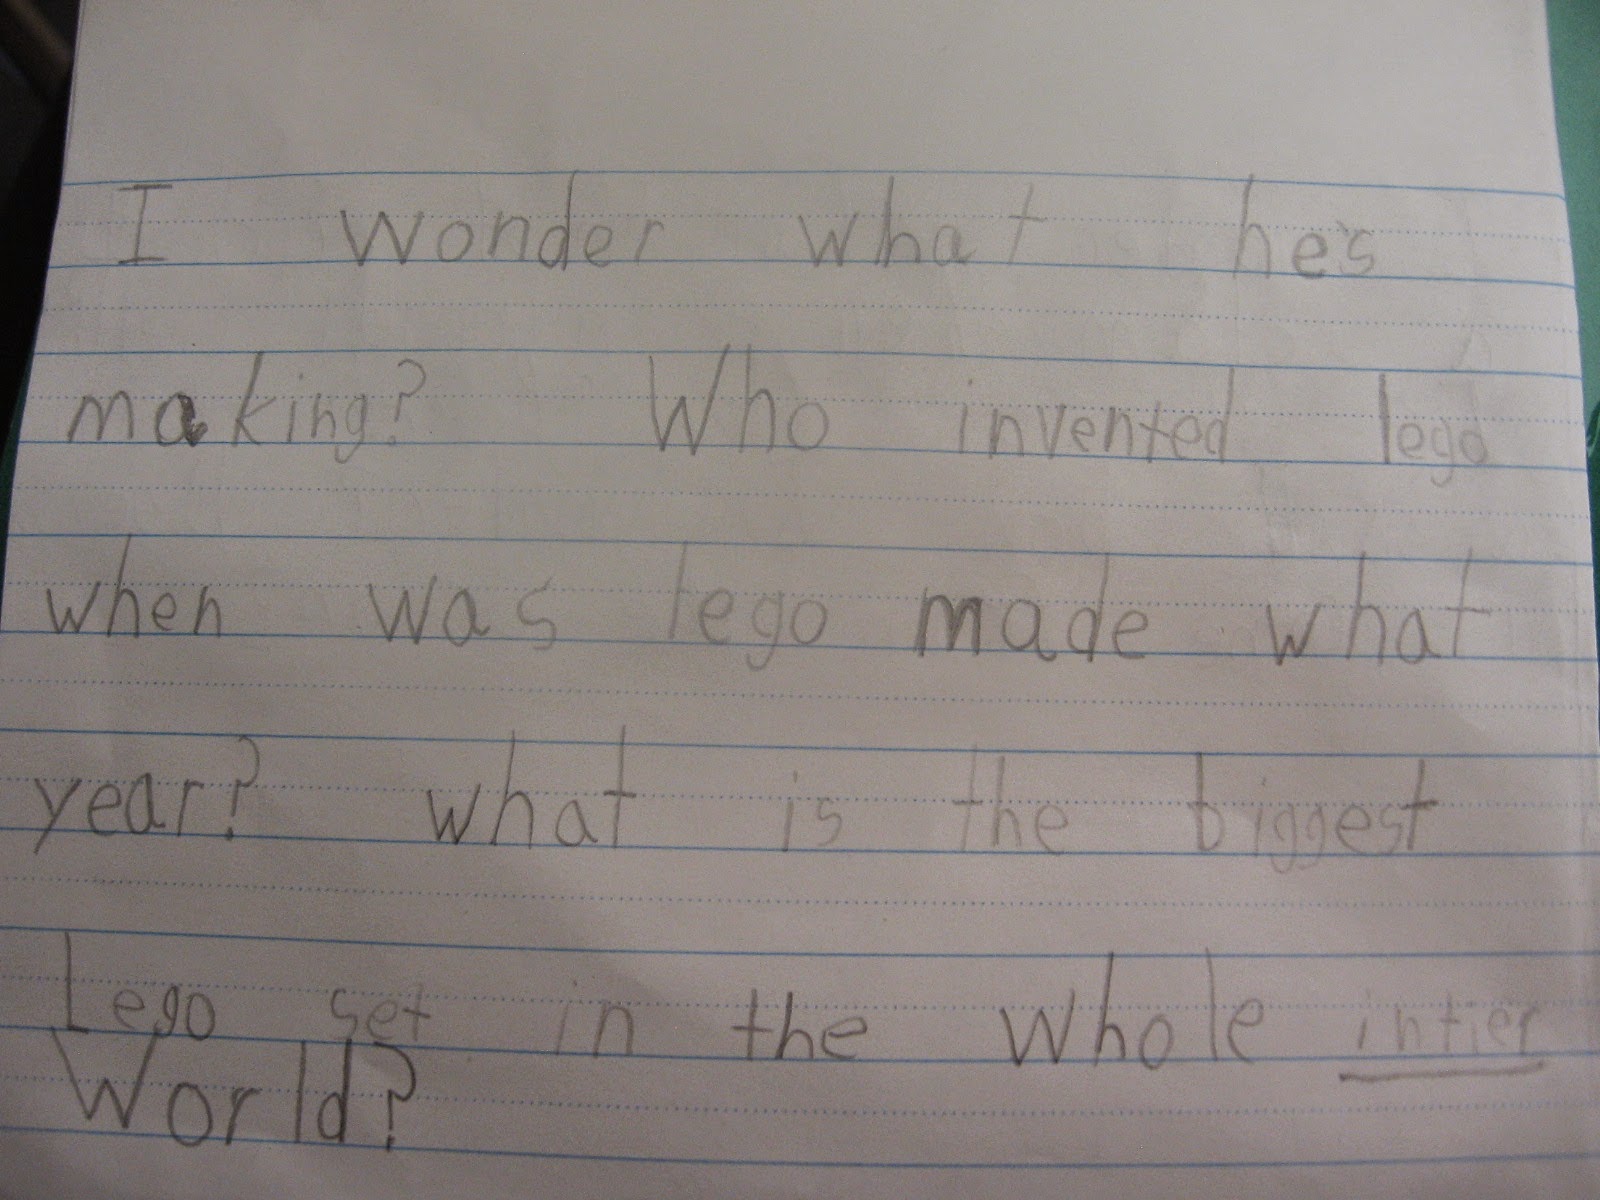 I wonder what he's
making? Who invented lego
when was lego made what
year? what is the biggest
Lego set in the whole intier
World?